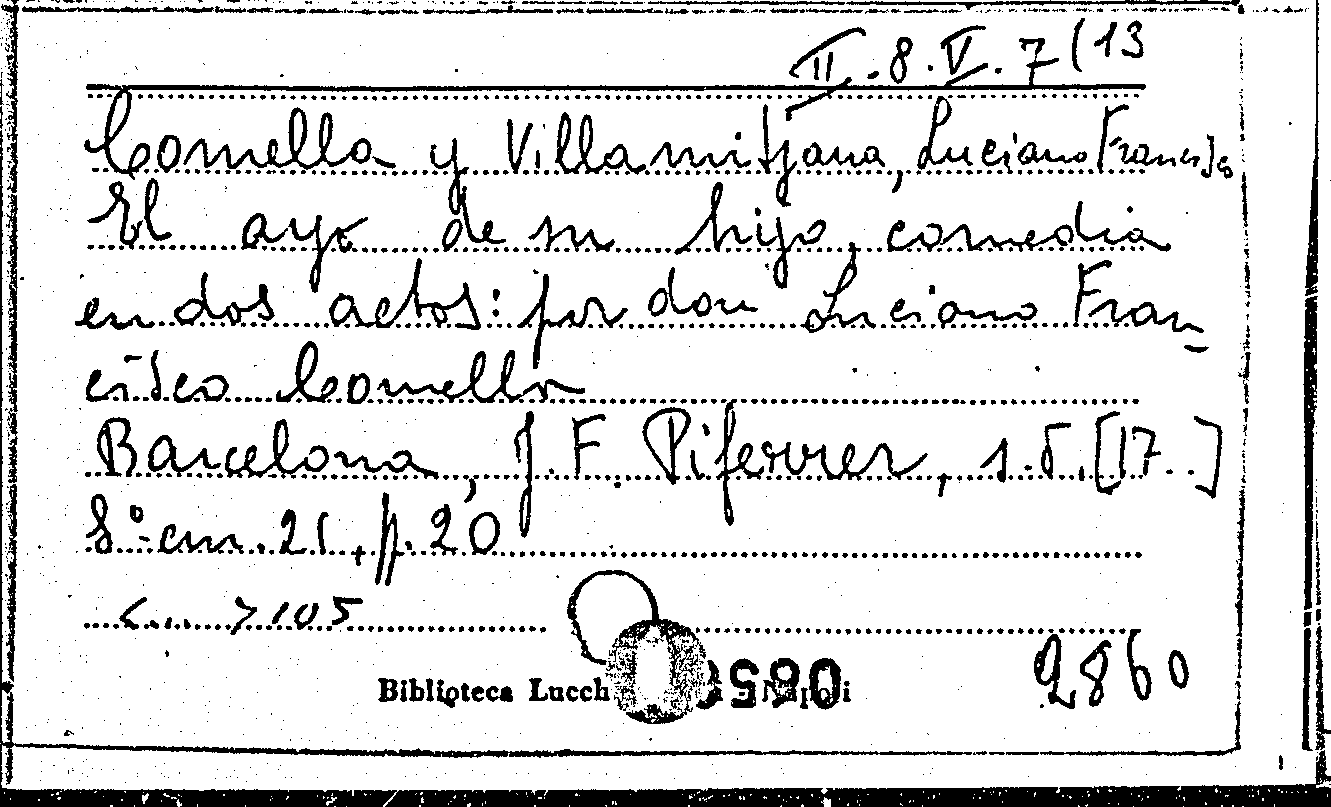 II.8.V.7(13
Comella y Villamitjana, Luciano Francisco
El ayo de su hijo, comedia
en dos actos: por don Luciano Fran=
cisco Comella
Barcelona, J.F. Piferrer, s.d. [17..]
8° cm. 21, p. 20
<...> 105
Biblioteca Lucch
2860